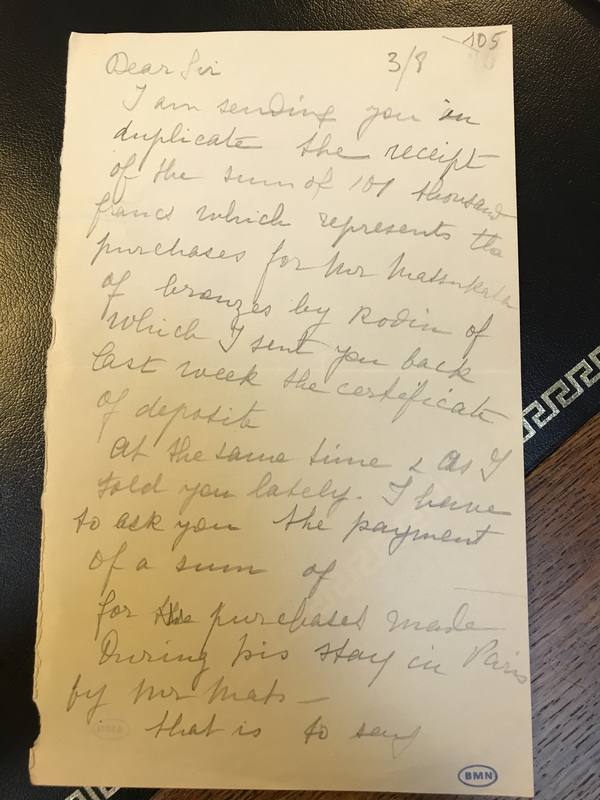 105
Dear Sir 3/8
I am sending you in
duplicate the receipt
of the sum of 101 thousand
francs which represents the
purchases for Mr Matsukata
of bronzes by Rodin of
which I sent you back
last week the certificate
of deposite
At the same time & as I
told you lately. I have
to ask you the payment
of a sum of
for the purchases made
During his stay in Paris
by Mr Mats —
that is to say
BMN